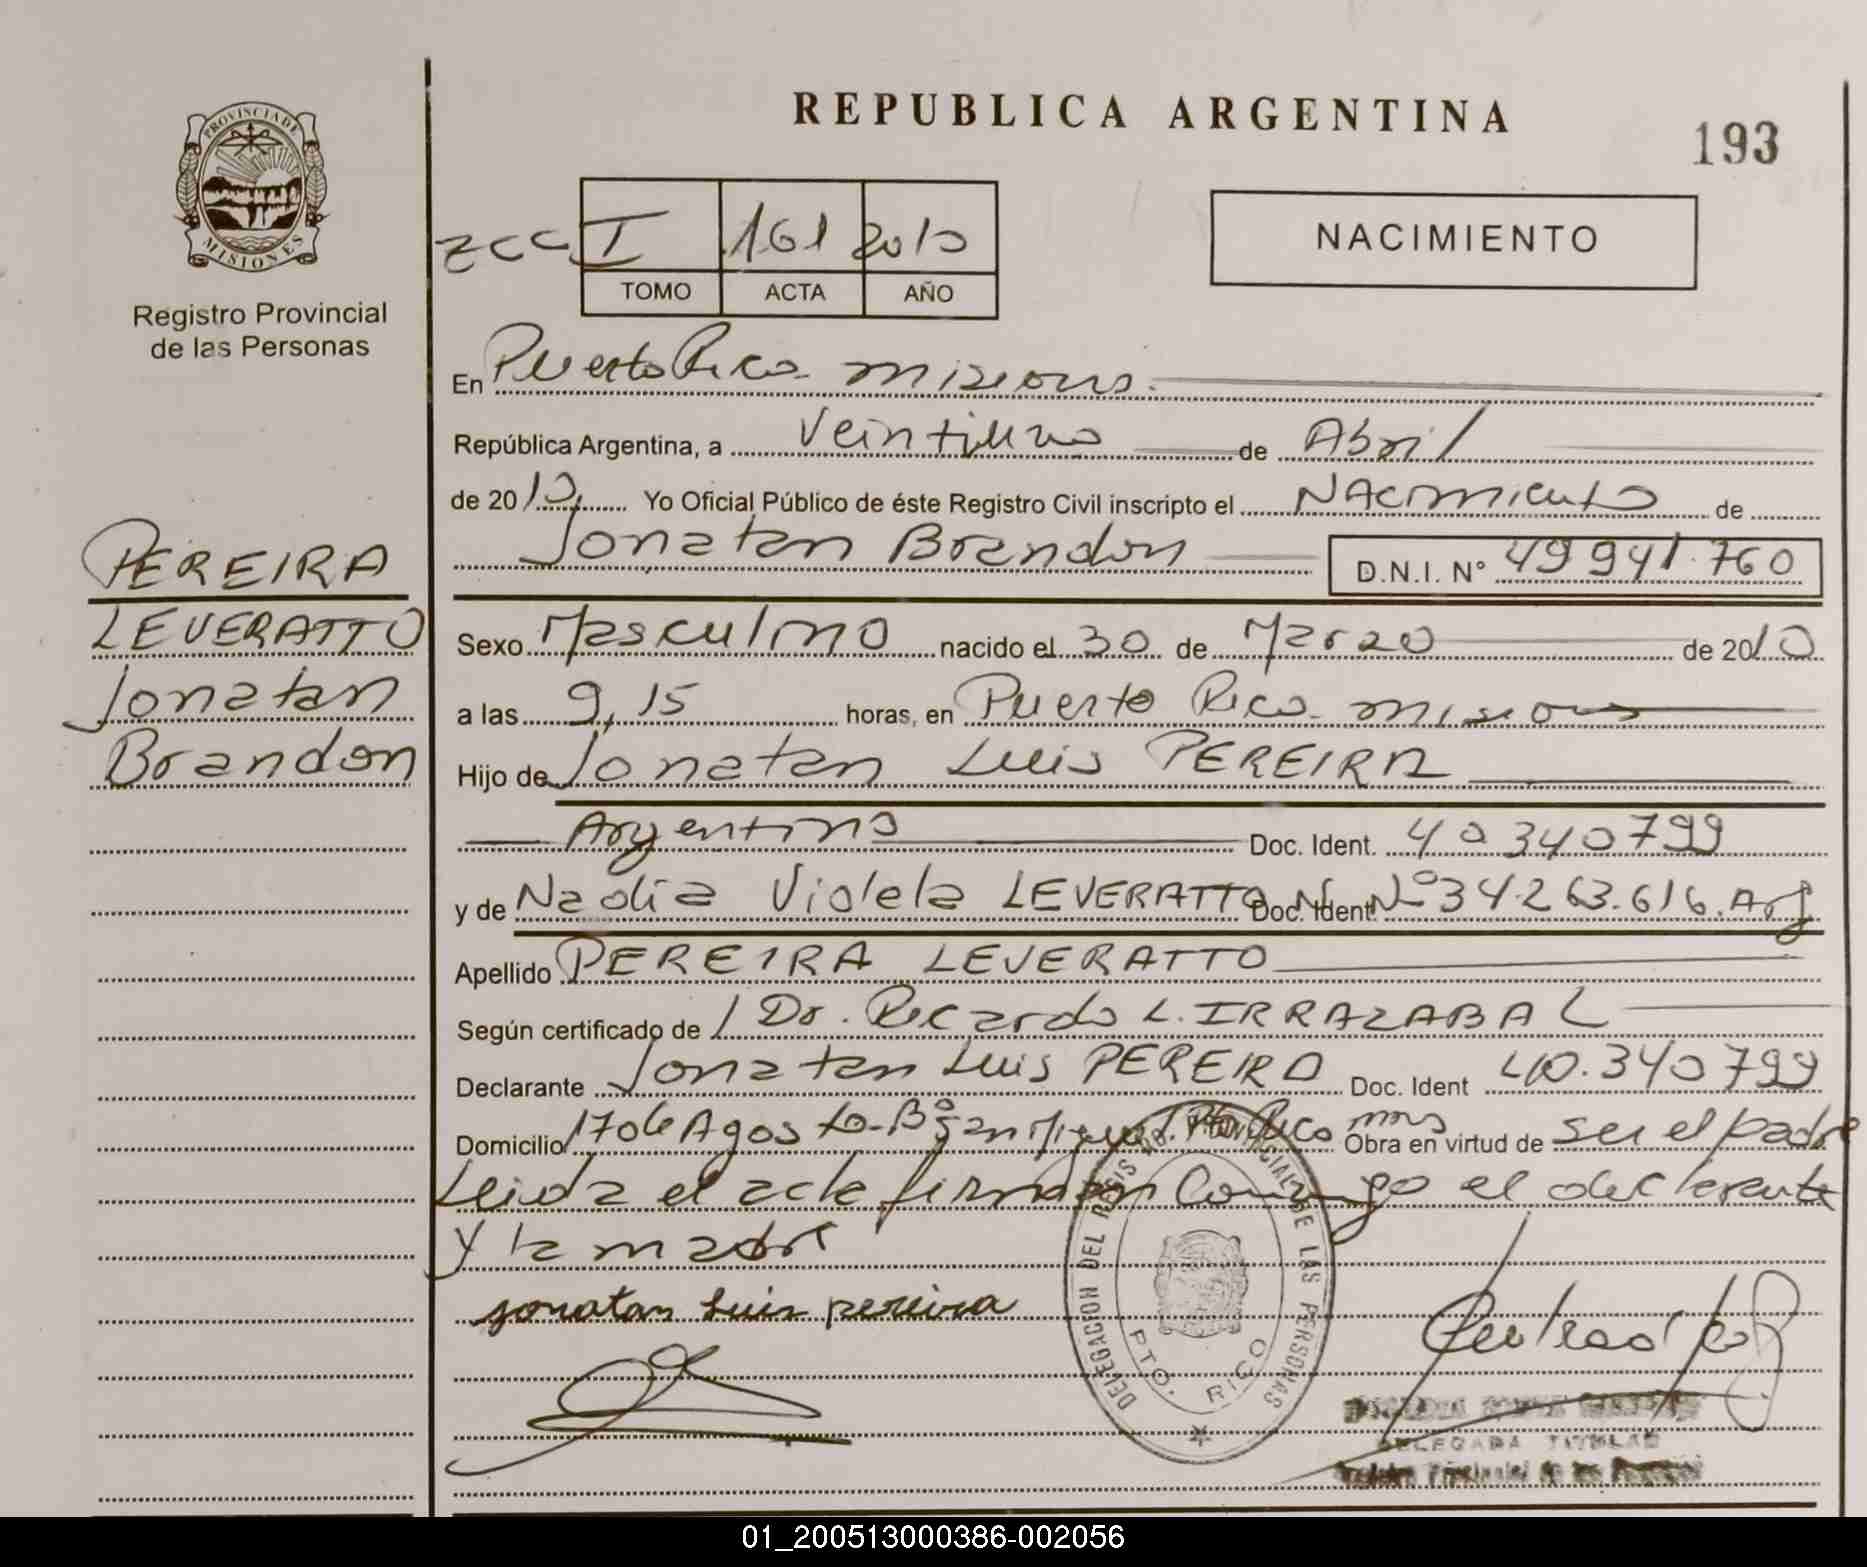 REPUBLICA ARGENTINA
193
PROVINCIA DE
MISIONES
Registro Provincial
de las Personas
NACIMIENTO
ZCC I 161 2010
TOMO ACTA AÑO
En Puerto Rico - misiones.
República Argentina, a Veintiuno de Abril
de 2010, Yo Oficial Público de éste Registro Civil inscripto el Nacimiento de
Jonatan Brandon D.N.I. N° 49 941.760
PEREIRA
LEVERATTO
Jonatan
Brandon
Sexo Masculino nacido el 30 de Marzo de 2010
a las 9,15 horas, en Puerto Rico - misiones
Hijo de Jonatan Luis PEREIRA
Argentino Doc. Ident. 40 340799
y de Nadia Violela LEVERATTO Doc. Ident. N° 34.263.616. Arg
Apellido PEREIRA LEVERATTO
Según certificado de / Dr. Ricardo L. IRRAZABAL
Declarante Jonatan Luis PEREIRA Doc. Ident 40.340799
Domicilio 17 de Agosto - B° San Miguel. Pto Rico mns Obra en virtud de ser el padre
Leida el acta firman Conmigo el declarante
y la madre
jonatan Luis pereira
DELEGACION DEL REGISTRO PROVINCIAL DE LAS PERSONAS
PTO. RICO
DELEGADA TITULAR
Registro Provincial de las Personas
01_200513000386-002056